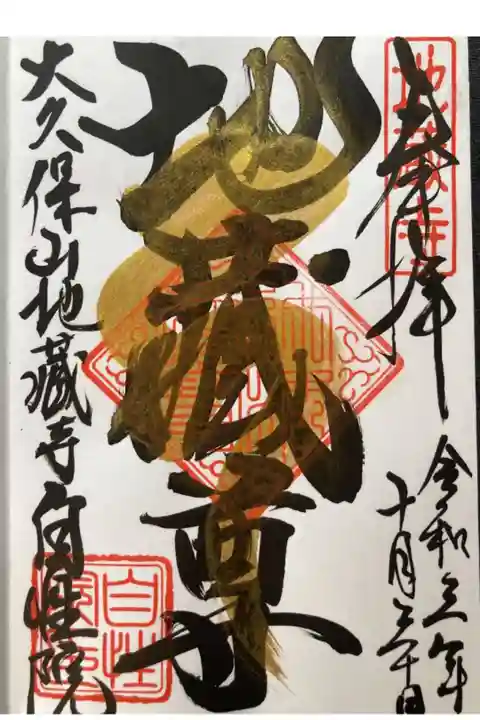 奉拝
地蔵寺
令和三年
十月三十日
地蔵尊
大久保山地蔵寺自性院